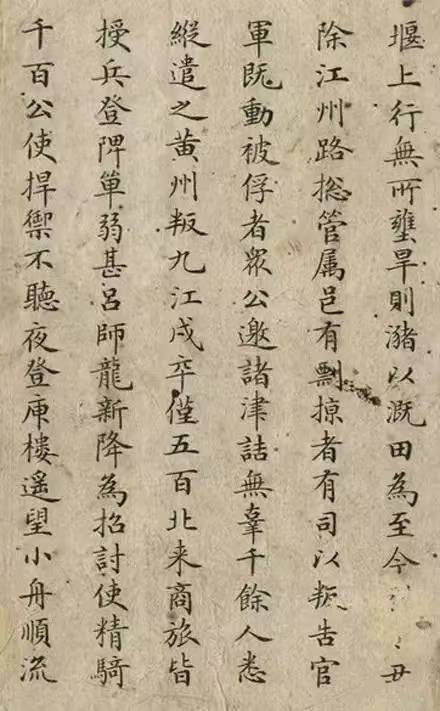 堰上行無所壅旱則瀦以溉田為至今丑
除江州路揔管属邑有剽掠者有司以叛告官
軍既動被俘者衆公邀諸津詰無辜千餘人悉
縱遣之黄州叛九江戍卒僅五百北来商旅皆
授兵登陴単弱甚吕師龍新降為招討使精騎
千百公使捍禦不聽夜登庾樓遥望小舟順流